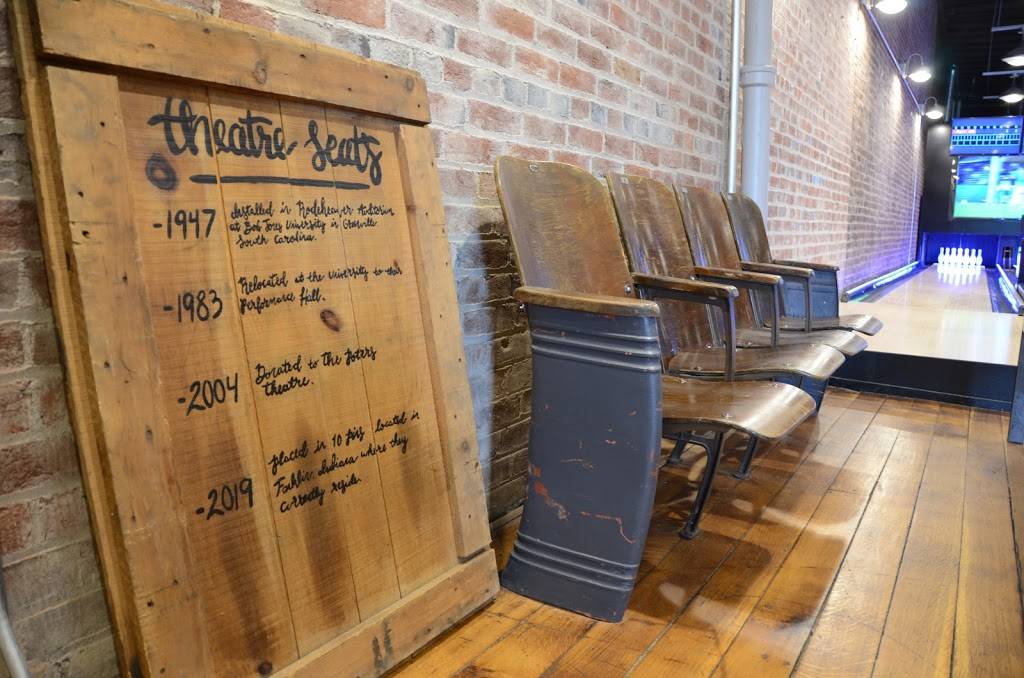 theatre seats
-1947 Installed in Rodeheaver Auditorium
at Bob Jones University in Greenville
South Carolina.
-1983 Relocated at the University to their
Performance Hall.
-2004 Donated to the
theatre.
-2019 placed in 10 located in
Indiana where they
currently reside.